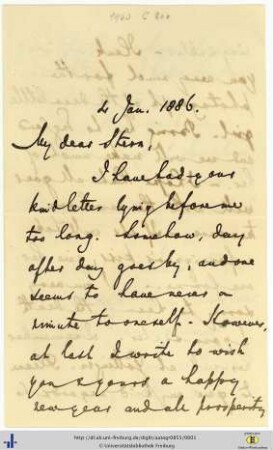 4 Jan. 1886.
My dear Stern,
I have had your
kind letter lying before me
too long. Somehow, day
after day goes by, and one
seems to have never a
minute to oneself. However,
at last I write to wish
you & yours a happy
new year and all prosperity
http://dl.ub.uni-freiburg.de/diglit/autogr0855/0001
© Universitätsbibliothek Freiburg